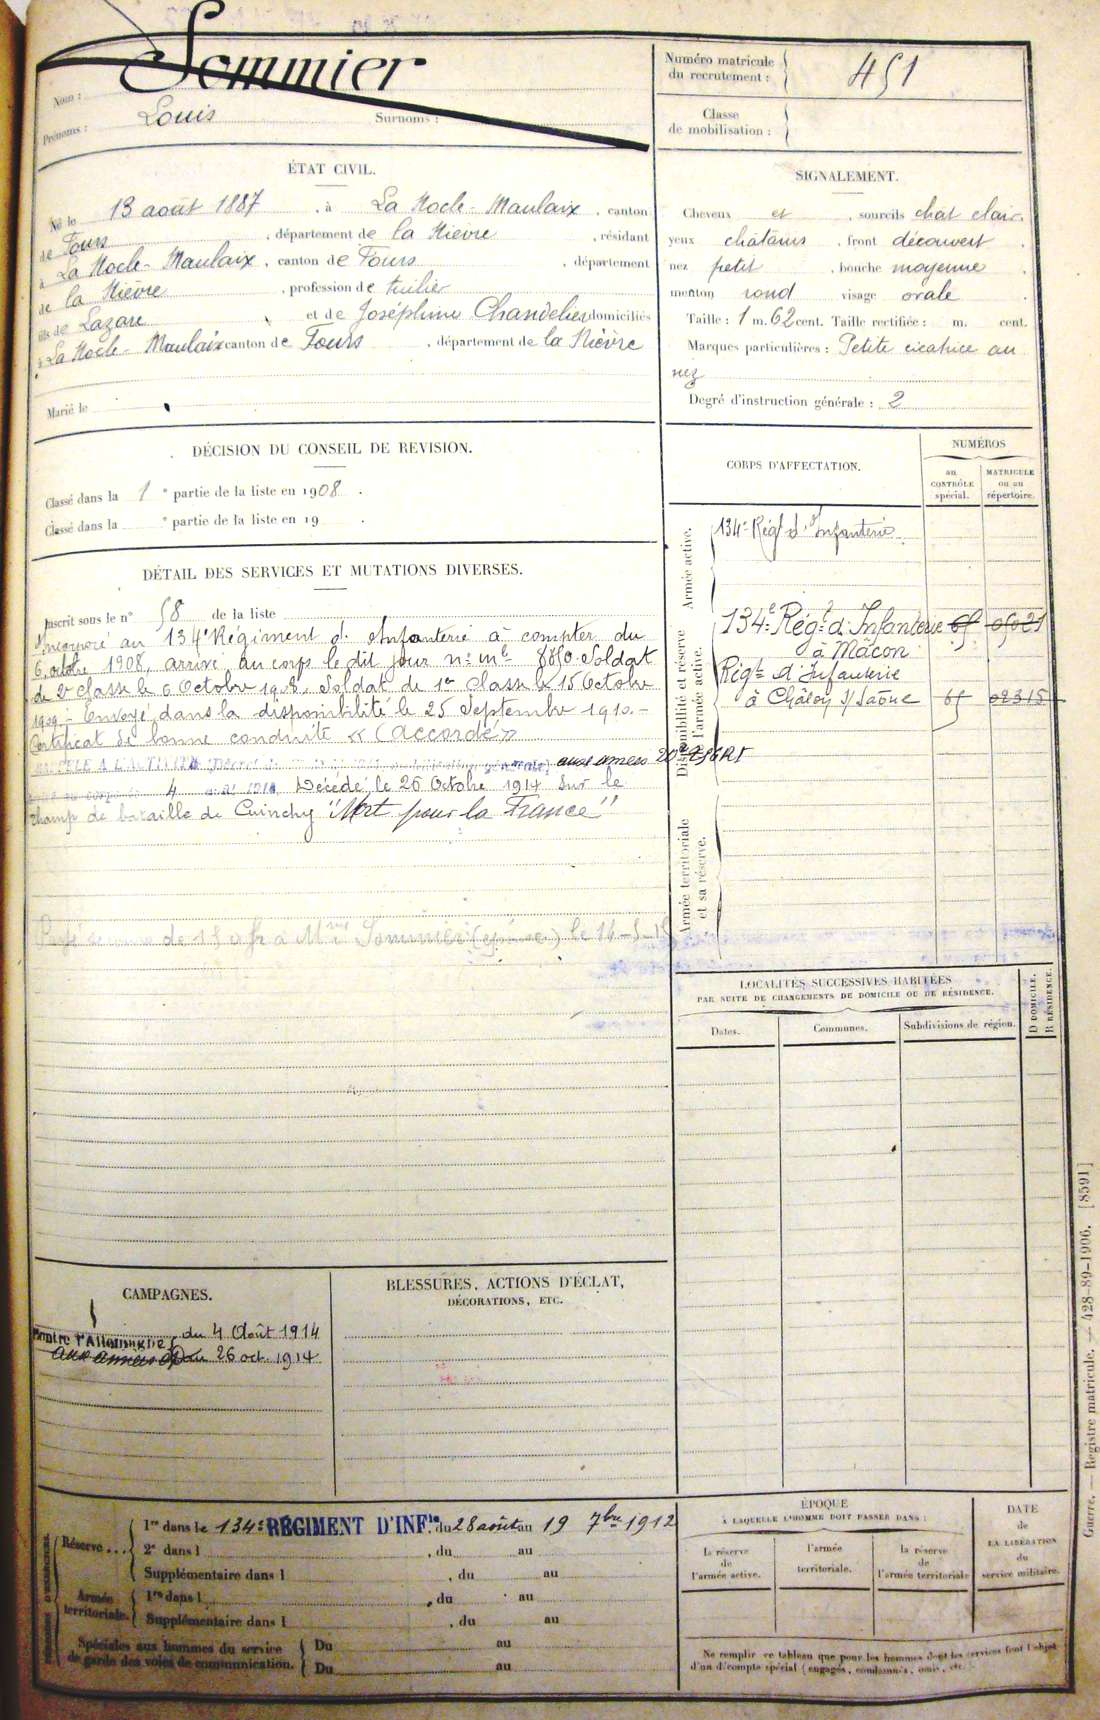 Nom : Sommier
Prénoms : Louis Surnoms :
Numéro matricule
du recrutement : 451
Classe
de mobilisation :
ÉTAT CIVIL.
Né le 13 août 1887, à La Nocle-Maulaix, canton
de Fours, département de la Nièvre, résidant
à La Nocle-Maulaix, canton de Fours, département
de la Nièvre, profession de tuilier
fils de Lazare et de Joséphine Chandelier domiciliés
à La Nocle-Maulaix canton de Fours, département de la Nièvre
Marié le
SIGNALEMENT.
Cheveux et , sourcils chat clair.
yeux châtains , front découvert .
nez petit , bouche moyenne
menton rond visage ovale
Taille : 1 m. 62 cent. Taille rectifiée : m. cent.
Marques particulières : Petite cicatrice au
nez
Degré d'instruction générale : 2
DÉCISION DU CONSEIL DE REVISION.
Classé dans la 1 e partie de la liste en 1908 .
Classé dans la e partie de la liste en 19 .
DÉTAIL DES SERVICES ET MUTATIONS DIVERSES.
Inscrit sous le n° 58 de la liste
Incorporé au 134e Régiment d'Infanterie à compter du
6 octobre 1908, arrivé au corps le dit jour n: mle Soldat
de 2e classe le 6 Octobre 1908. Soldat de 1er classe le 15 Octobre
1909.- Envoyé dans la disponibilité le 25 Septembre 1910.-
Certificat de bonne conduite « (Accordé »
RAPPELÉ A L'ACTIVITÉ générale) aux armées
4 1914 Décédé le 26 Octobre 1914 Sur le
champ de bataille de Cuinchy "Mort pour la France"
de 150 f à Mme Sommier
CORPS D'AFFECTATION.
NUMÉROS
au
CONTRÔLE
spécial.
MATRICULE
ou au
répertoire.
Armée active.
134e Régt d'Infanterie
Disponibilité et réserve
de l'armée active.
134e Régt d'Infanterie
à Mâcon
Régt d'Infanterie
à Châlon s/ Saône 02315
Armée territoriale
et sa réserve.
LOCALITÉS SUCCESSIVES HABITÉES
PAR SUITE DE CHANGEMENTS DE DOMICILE OU DE RÉSIDENCE.
Dates.
Communes.
Subdivisions de région.
D DOMICILE.
R RÉSIDENCE.
CAMPAGNES.
Contre l'Allemagne du 4 Août 1914
aux armées au 26 oct. 1914
BLESSURES, ACTIONS D'ÉCLAT,
DÉCORATIONS, ETC.
Réserve... 1re dans le 134e RÉGIMENT D'INFie, du 28 août au 19 7bre 1912
2e dans l , du au
Supplémentaire dans l , du au
Armée
territoriale. 1re dans l , du au
Supplémentaire dans l , du au
Spéciales aux hommes du service
de garde des voies de communication. Du au
Du au
ÉPOQUE
À LAQUELLE L'HOMME DOIT PASSER DANS :
la réserve
de
l'armée active.
l'armée
territoriale.
la réserve
de
l'armée territoriale
DATE
de
LA LIBÉRATION
du
service militaire.
Ne remplir ce tableau que pour les hommes dont les services font l'objet
d'un décompte spécial (engagés, condamnés, omis, etc.
Guerre. — Registre matricule. — 428-89-1906. [8591]